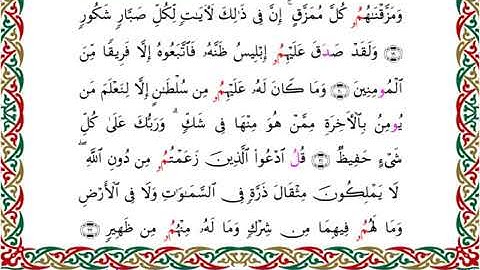 وَمَزَّقْنَٰهُمُۥ كُلَّ مُمَزَّقٍ ۚ إِنَّ فِي ذَٰلِكَ لَأٓيَٰتٖ لِّكُلِّ صَبَّارٖ شَكُورٖ
وَلَقَدْ صَدَقَ عَلَيْهِمُۥ إِبْلِيسُ ظَنَّهُۥ فَٱتَّبَعُوهُ إِلَّا فَرِيقٗا مِّنَ
ٱلْمُومِنِينَ وَمَا كَانَ لَهُۥ عَلَيْهِمُۥ مِن سُلْطَٰنٍ إِلَّا لِنَعْلَمَ مَن
يُومِنُ بِٱلْأٓخِرَةِ مِمَّنْ هُوَ مِنْهَا فِي شَكّٖ ۗ وَرَبُّكَ عَلَىٰ كُلِّ
شَيْءٍ حَفِيظٞ قُلُ ٱدْعُوا۟ ٱلَّذِينَ زَعَمْتُمُۥ مِن دُونِ ٱللَّهِ ۖ
لَا يَمْلِكُونَ مِثْقَالَ ذَرَّةٖ فِي ٱلسَّمَٰوَٰتِ وَلَا فِي ٱلْأَرْضِ
وَمَا لَهُمُۥ فِيهِمَا مِن شِرْكٖ وَمَا لَهُۥ مِنْهُمُۥ مِن ظَهِيرٖ